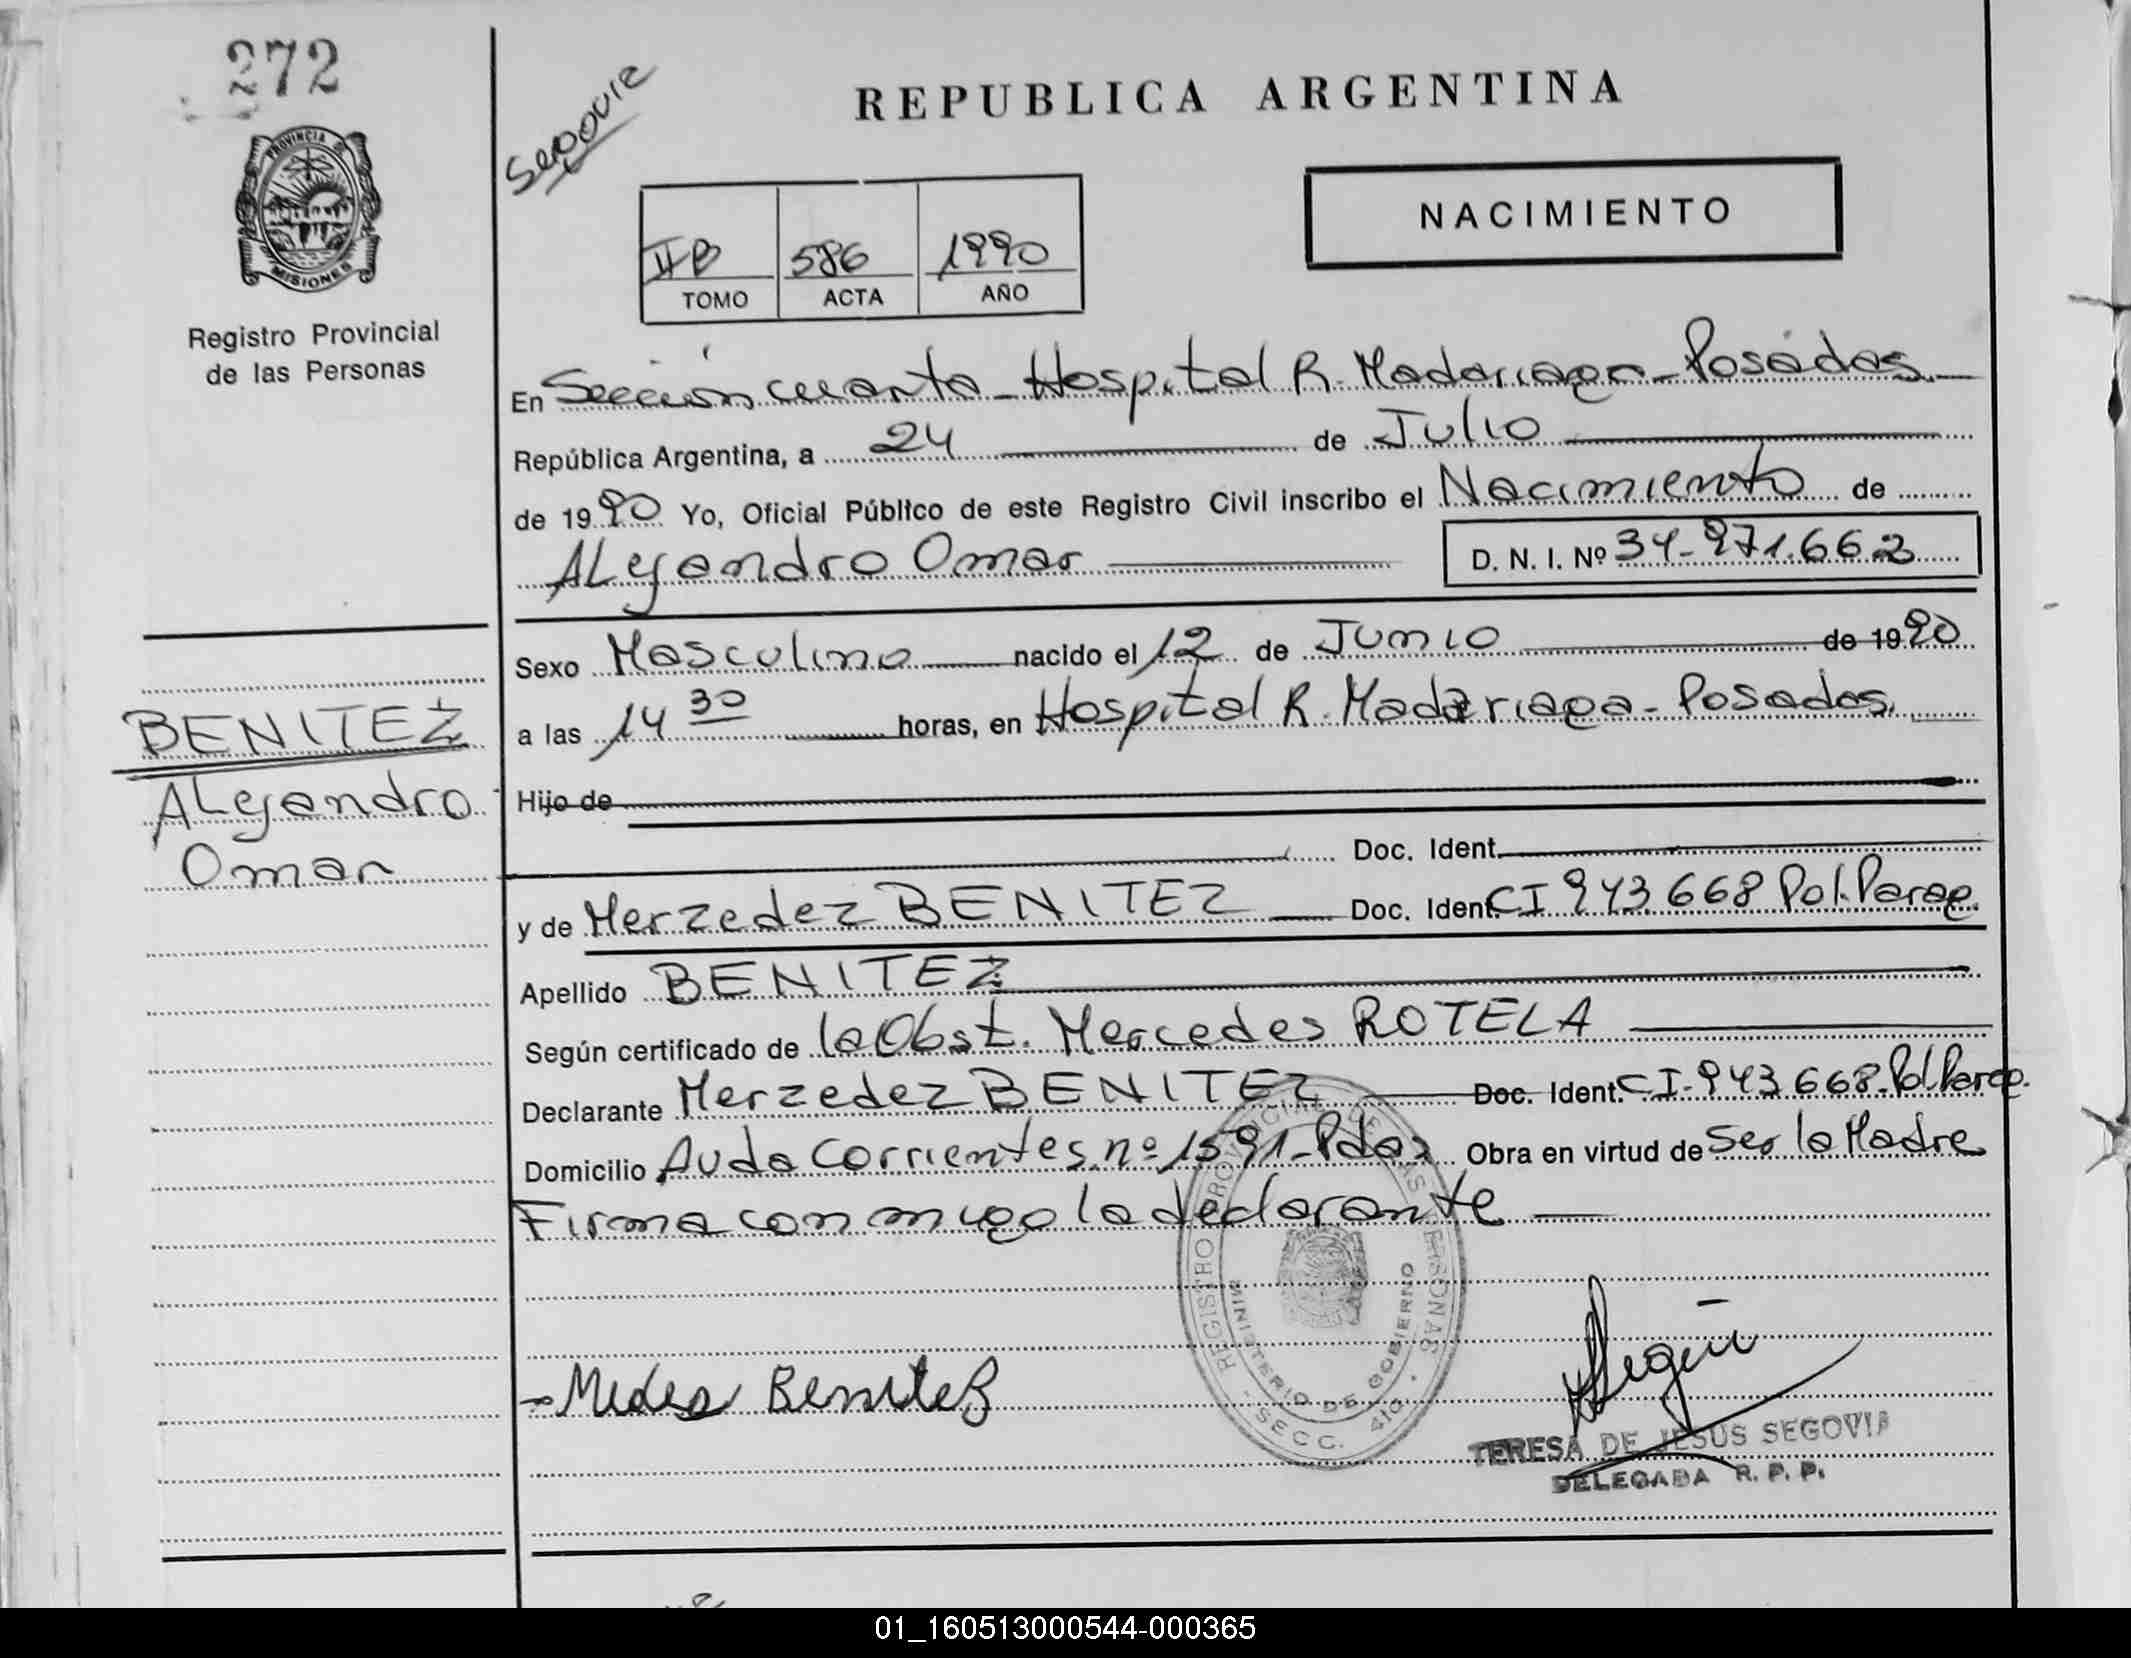 272
Segovia
REPUBLICA ARGENTINA
PROVINCIA DE
MISIONES
Registro Provincial
de las Personas
NACIMIENTO
II B 586 1990
TOMO ACTA AÑO
En Sección cuarta - Hospital R. Madariaga - Posadas.
República Argentina, a 24 de Julio
de 1990 Yo, Oficial Público de este Registro Civil inscribo el Nacimiento de
ALejandro Omar D. N. I. Nº 34-971.662
Sexo Masculino nacido el 12 de Junio de 1990
a las 14 30 horas, en Hospital R. Madariaga - Posadas.
BENITEZ
ALejandro
Omar
Hijo de
Doc. Ident.
y de Merzedez BENITEZ Doc. Ident. CI 943.668 Pol. Parag.
Apellido BENITEZ
Según certificado de la Obst. Mercedes ROTELA
Declarante Merzedez BENITEZ Doc. Ident. CI-943668-Pol. Parag.
Domicilio Avda Corrientes nº 1591-Pdas Obra en virtud de Ser la Madre
Firma con migo la declarante
REGISTRO PROVINCIAL DE LAS PERSONAS
MINISTERIO DE GOBIERNO
SECC. 4ta
Benitez
TERESA DE JESUS SEGOVIA
DELEGADA R. P. P.
01_160513000544-000365